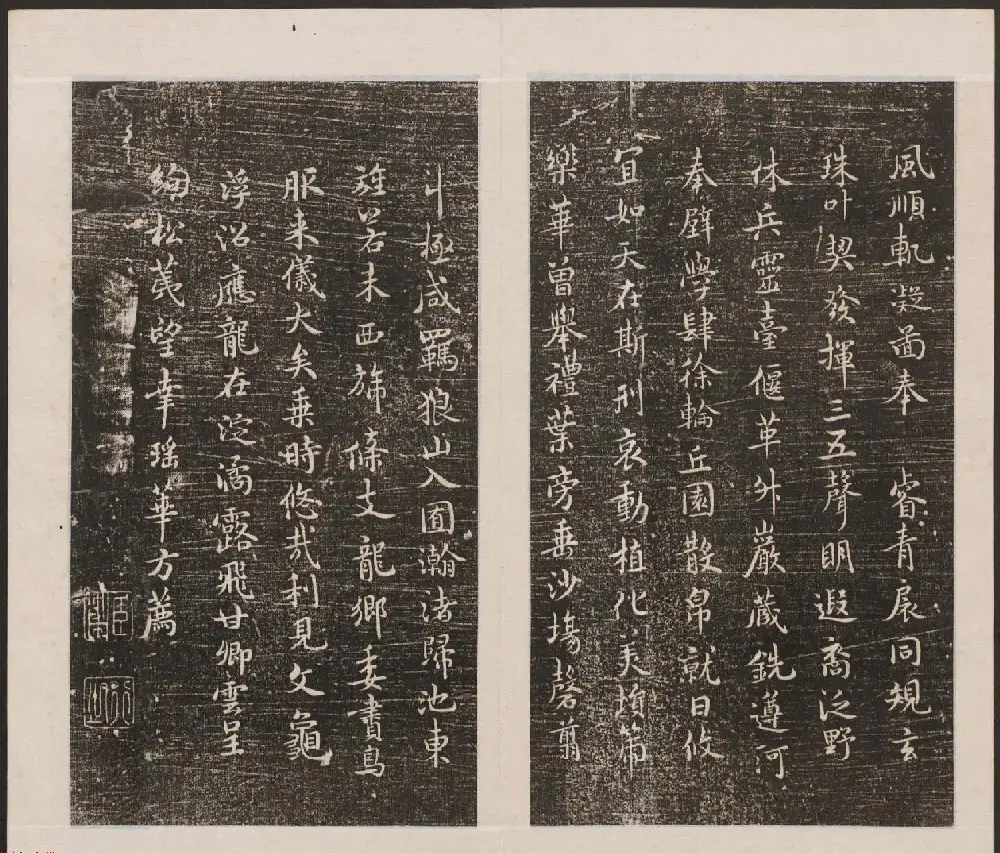 風順軌凝圖奉 睿青扆同規玄
珠叶契發揮三五聲明遐裔泛野
休兵靈臺偃革外嚴藏銑遵河
奉璧學肆徐輪丘園散帛就日攸
宜如天在斯刑哀動植化
樂華曾舉禮葉旁垂沙塲磬翦
斗極咸羈狼山入囿瀚渚歸池東
雜若木西旆條支龍鄉委書鳥
服来儀大矣乘時悠哉利見文龜
浮沼應龍在淀濡露飛甘卿雲呈
絢松荑望幸瑶華方薦